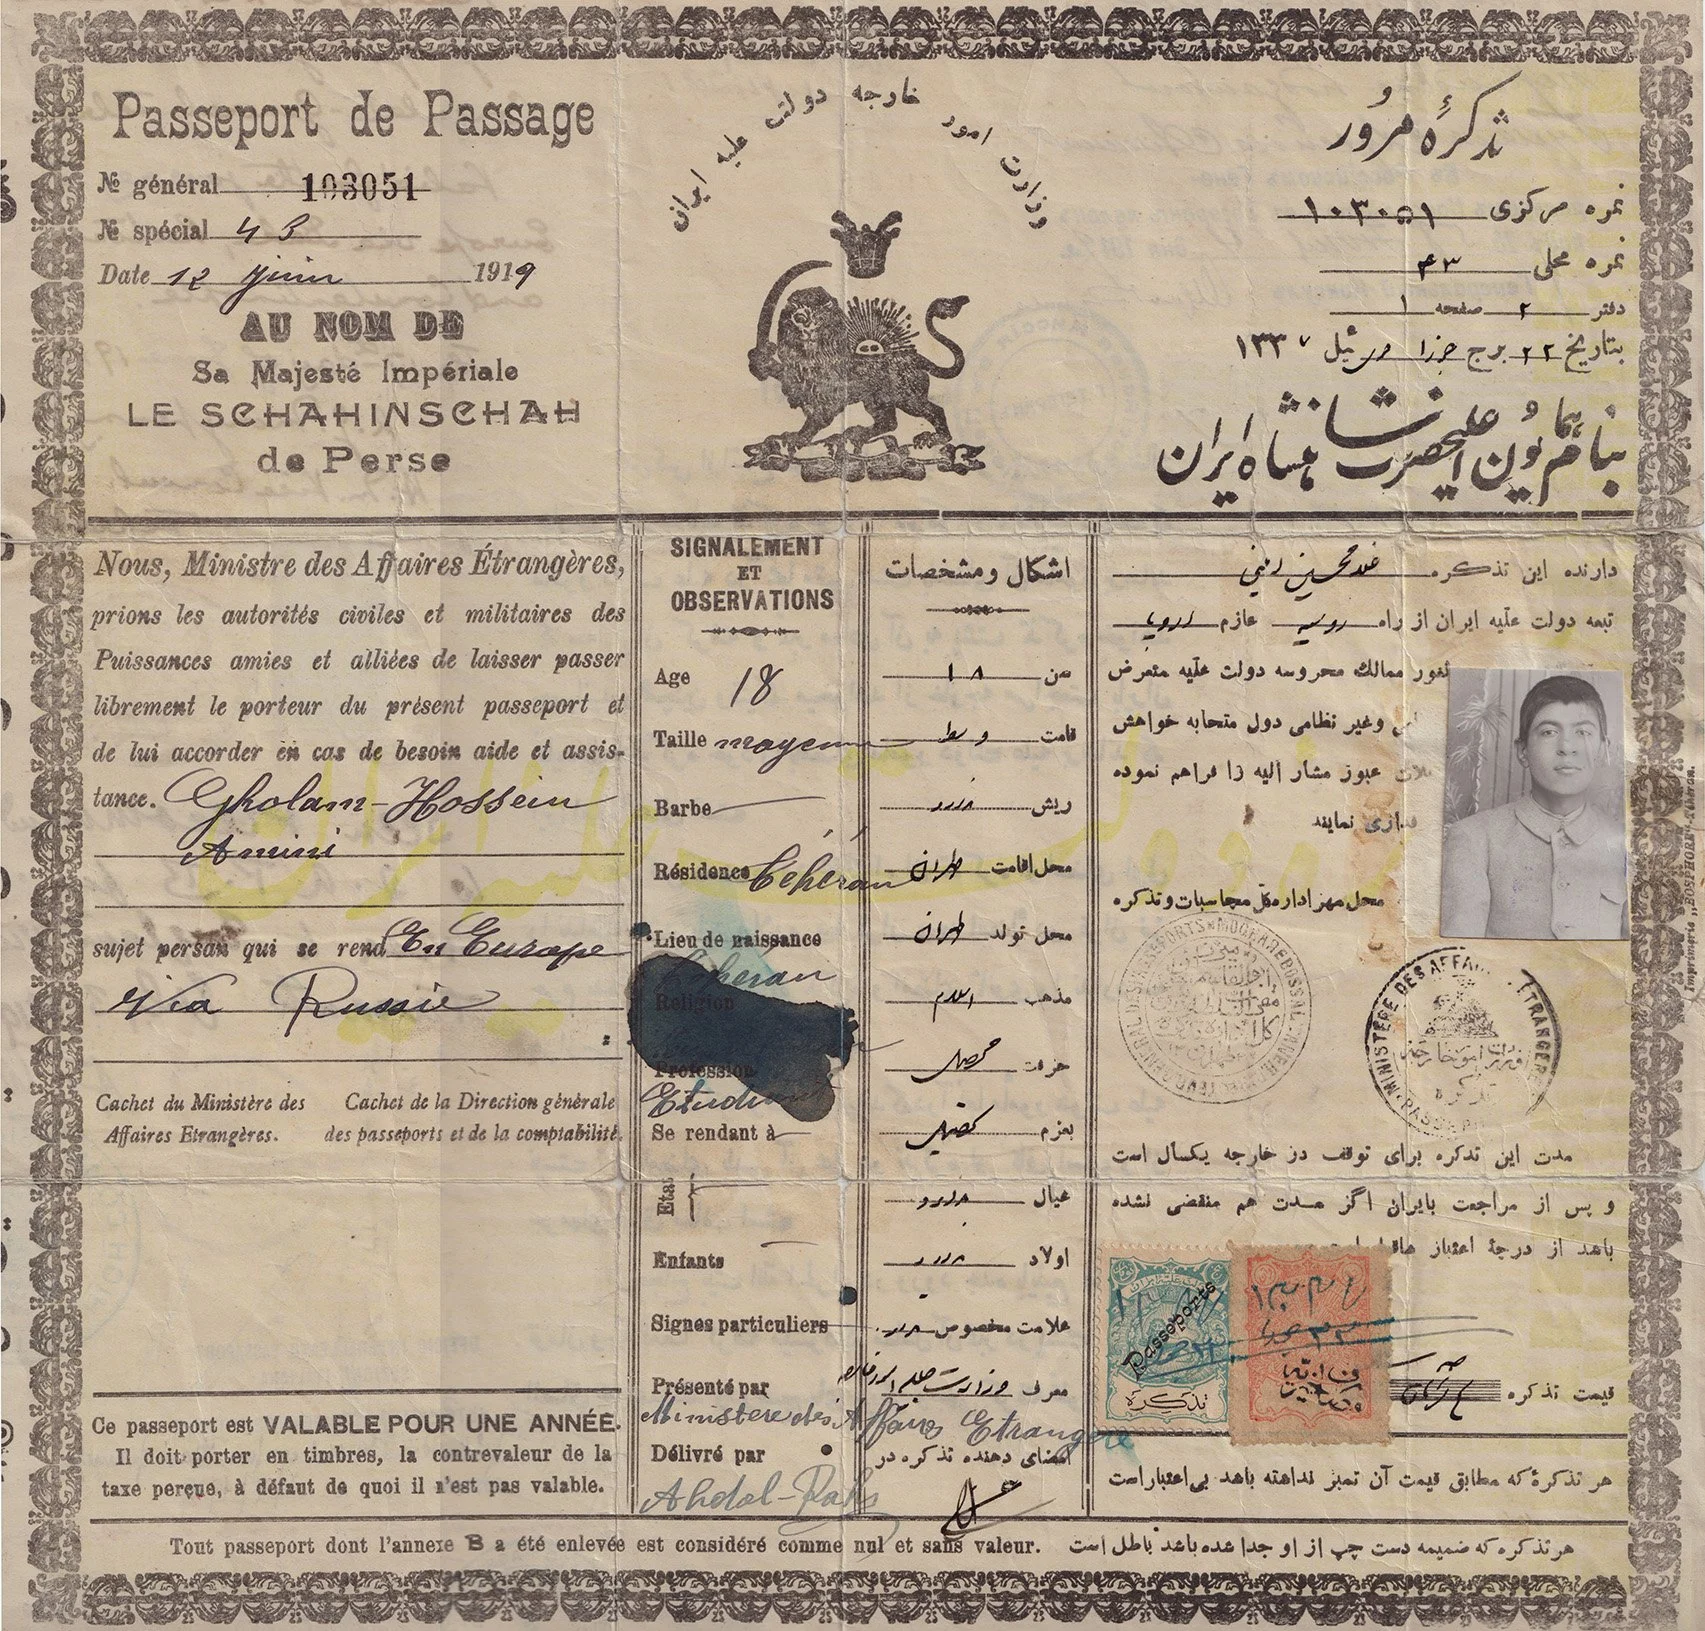 Passeport de Passage
№ général 103051
№ spécial 43
Date 12 Juin 1919
AU NOM DE
Sa Majesté Impériale
LE SCHAHINSCHAH
de Perse
وزارت امور خارجه دولت علیه ایران
تذکرهٔ مرُور
نمره مرکزی ۱۰۳۰۵۱
نمره محلی ۴۳
دفتر ۲ صفحه ۱
بتاریخ ۲۲ برج جوزا ئیل ۱۳۳۷
بنام همایون اعلیحضرت شاهنشاه ایران
Nous, Ministre des Affaires Étrangères,
prions les autorités civiles et militaires des
Puissances amies et alliées de laisser passer
librement le porteur du présent passeport et
de lui accorder en cas de besoin aide et assis-
tance. Gholam-Hossein
Amini
sujet persan qui se rend En Europe
Via Russie
Cachet du Ministère des
Affaires Etrangères.
Cachet de la Direction générale
des passeports et de la comptabilité.
Ce passeport est VALABLE POUR UNE ANNÉE.
Il doit porter en timbres, la contrevaleur de la
taxe perçue, à défaut de quoi il n'est pas valable.
SIGNALEMENT
ET
OBSERVATIONS
Age 18
Taille moyenne
Barbe
Résidence Téhéran
Lieu de naissance
Téhéran
Religion
Profession
Etudiant
Se rendant à
Etat
Enfants
Signes particuliers
Présenté par
Ministère des Affaires Etrangère
Délivré par
اشکال و مشخصات
سن ۱۸
قامت وسط
ریش ندارد
محل اقامت طهران
محل تولد طهران
مذهب اسلام
حرفت محصل
بعزم تحصیل
عیال ندارد
اولاد ندارد
علامت مخصوص ندارد
معرف وزارت جلیله امور خارجه
امضای دهنده تذکره در
دارنده این تذکره غلامحسین امینی
تبعه دولت علیه ایران از راه روسیه عازم اروپا
ثغور ممالك محروسه دولت علّیه متعرض
وغیر نظامی دول متحابه خواهش
عبور مشار الیه را فراهم نموده
نمایند
محل مهر اداره کل محاسبات و تذکره
MINISTÈRE DES AFFA ÉTRANGÈRE
وزارت امور خارجه
تذکره
مدت این تذکره برای توقف در خارجه یکسال است
و پس از مراجعت بایران اگر مدت هم منقضی نشده
باشد از درجهٔ اعتبار
Passeports
تذکره
قیمت تذکره
هر تذکرهٔ که مطابق قیمت آن تمبر نداشته باشد بی اعتبار است
Tout passeport dont l'annexe B a été enlevée est considéré comme nul et sans valeur.
هر تذکره که ضمیمه دست چپ از او جدا شده باشد باطل است
Imprimerie „BOSPHORE“-Téhéran.